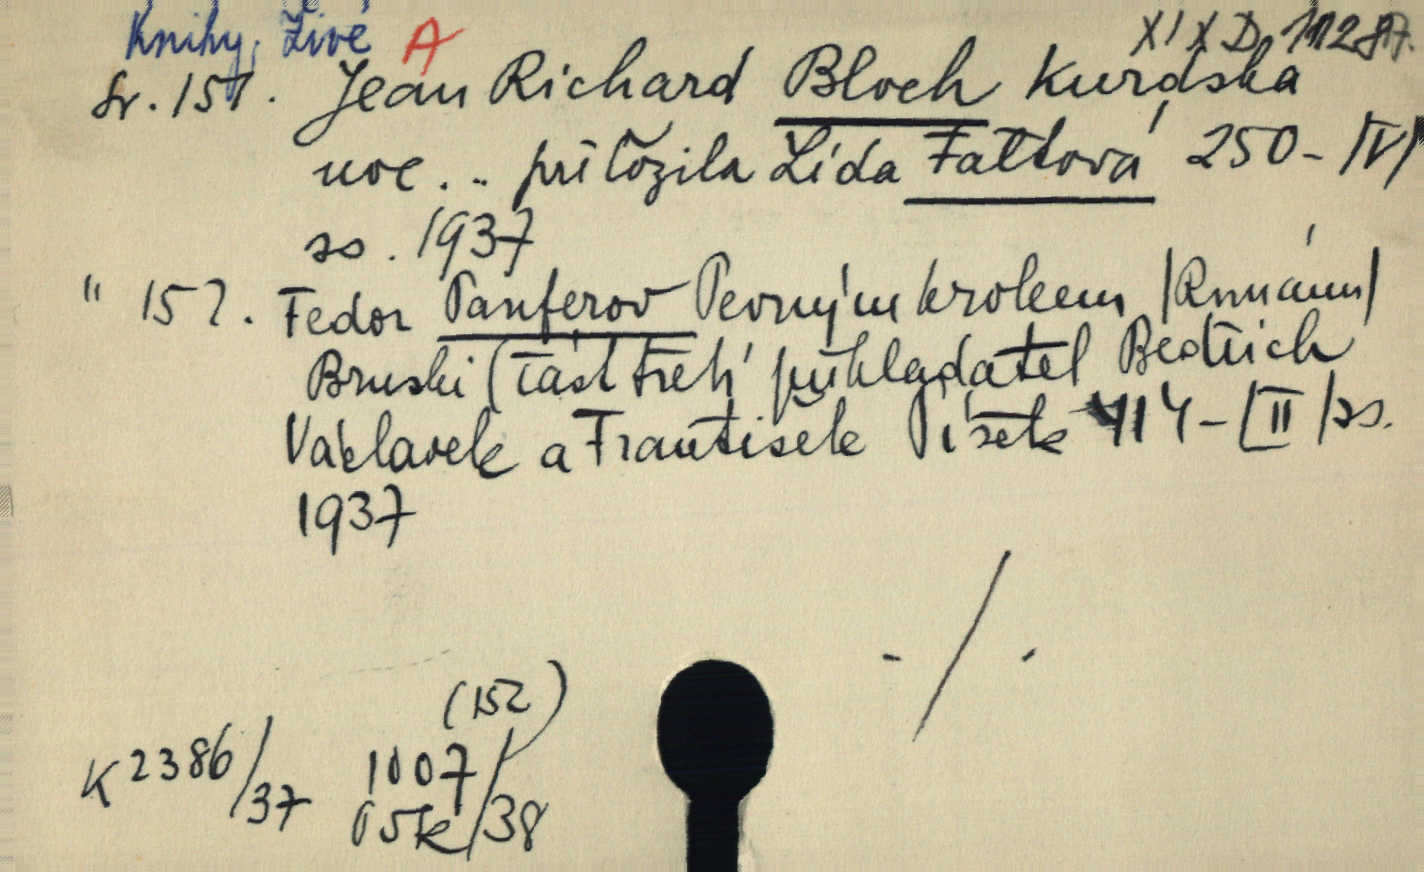 Knihy, Živé A XIX D 11287.
Sv. 151. Jean Richard Bloch Kurdská
noc... přeložila Lída Faltová 250-/IV/
ss. 1937
" 152. Fedor Panferov Pevným krokem /Román/
Bruski (část třetí překladatel Bedřich
Václavek a František Písek 414-[II]ss.
1937
- / .
(152)
K 2386/37 1007
/38